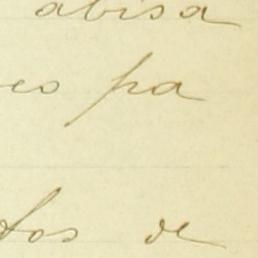 abisa
eo pa
tos de